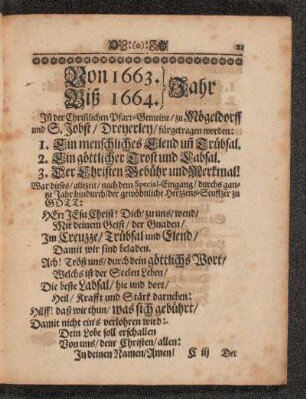 :(o): 21
Von 1663. } Jahr
Biß 1664.
In der Christlichen Pfarr-Gemeine / zu Mögeldorff
und S. Jobst / Dreyerley / fürgetragen worden:
1. Ein menschliches Elend uñ Trübsal.
2. Ein göttlicher Trost und Labsal.
3. Der Christen Gebühr und Merkmal!
War dieses / allezeit / nach dem Special-Eingang / durchs gan-
tze Jahr hindurch / der gewöhnliche Hertzens-Seuffzer zu
GOTT:
HErr JEsu Christ! Dich / zu uns / wend /
Mit deinem Geist / der Gnaden /
Im Creutze / Trübsal und Elend /
Damit wir sind beladen.
Ach! Tröst uns / durch dein göttlichs Wort /
Welchs ist der Seelen Leben /
Die beste Labsal / hie und dort /
Heil / Krafft und Stärk darneben:
Hilff! daß wir thun / was sich gebührt /
Damit nicht ein's verlohren wird:
Dein Lobe soll erschallen
Von uns / dein Christen / allen:
In deinen Namen / Amen! C iij Der